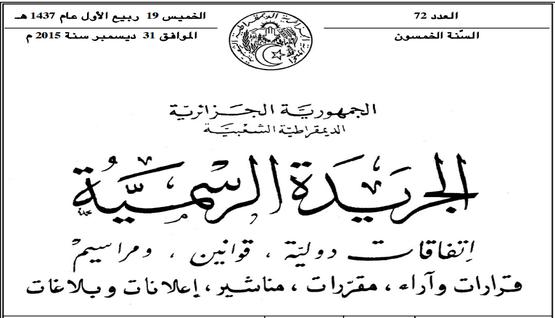 العدد 72
السّنة الخمسون
الخميس 19 ربيع الأول عام 1437 هـ
الموافق 31 ديسمبر سنة 2015 م
الجمهوريّة الجـزائريّة
الديمقراطيّة الشعبيّة
الجريدة الرسميّة
إتفاقات دوليّة ، قوانين ، ومراسيم
قرارات وآراء ، مقرّرات ، مناشير ، إعلانات وبلاغات